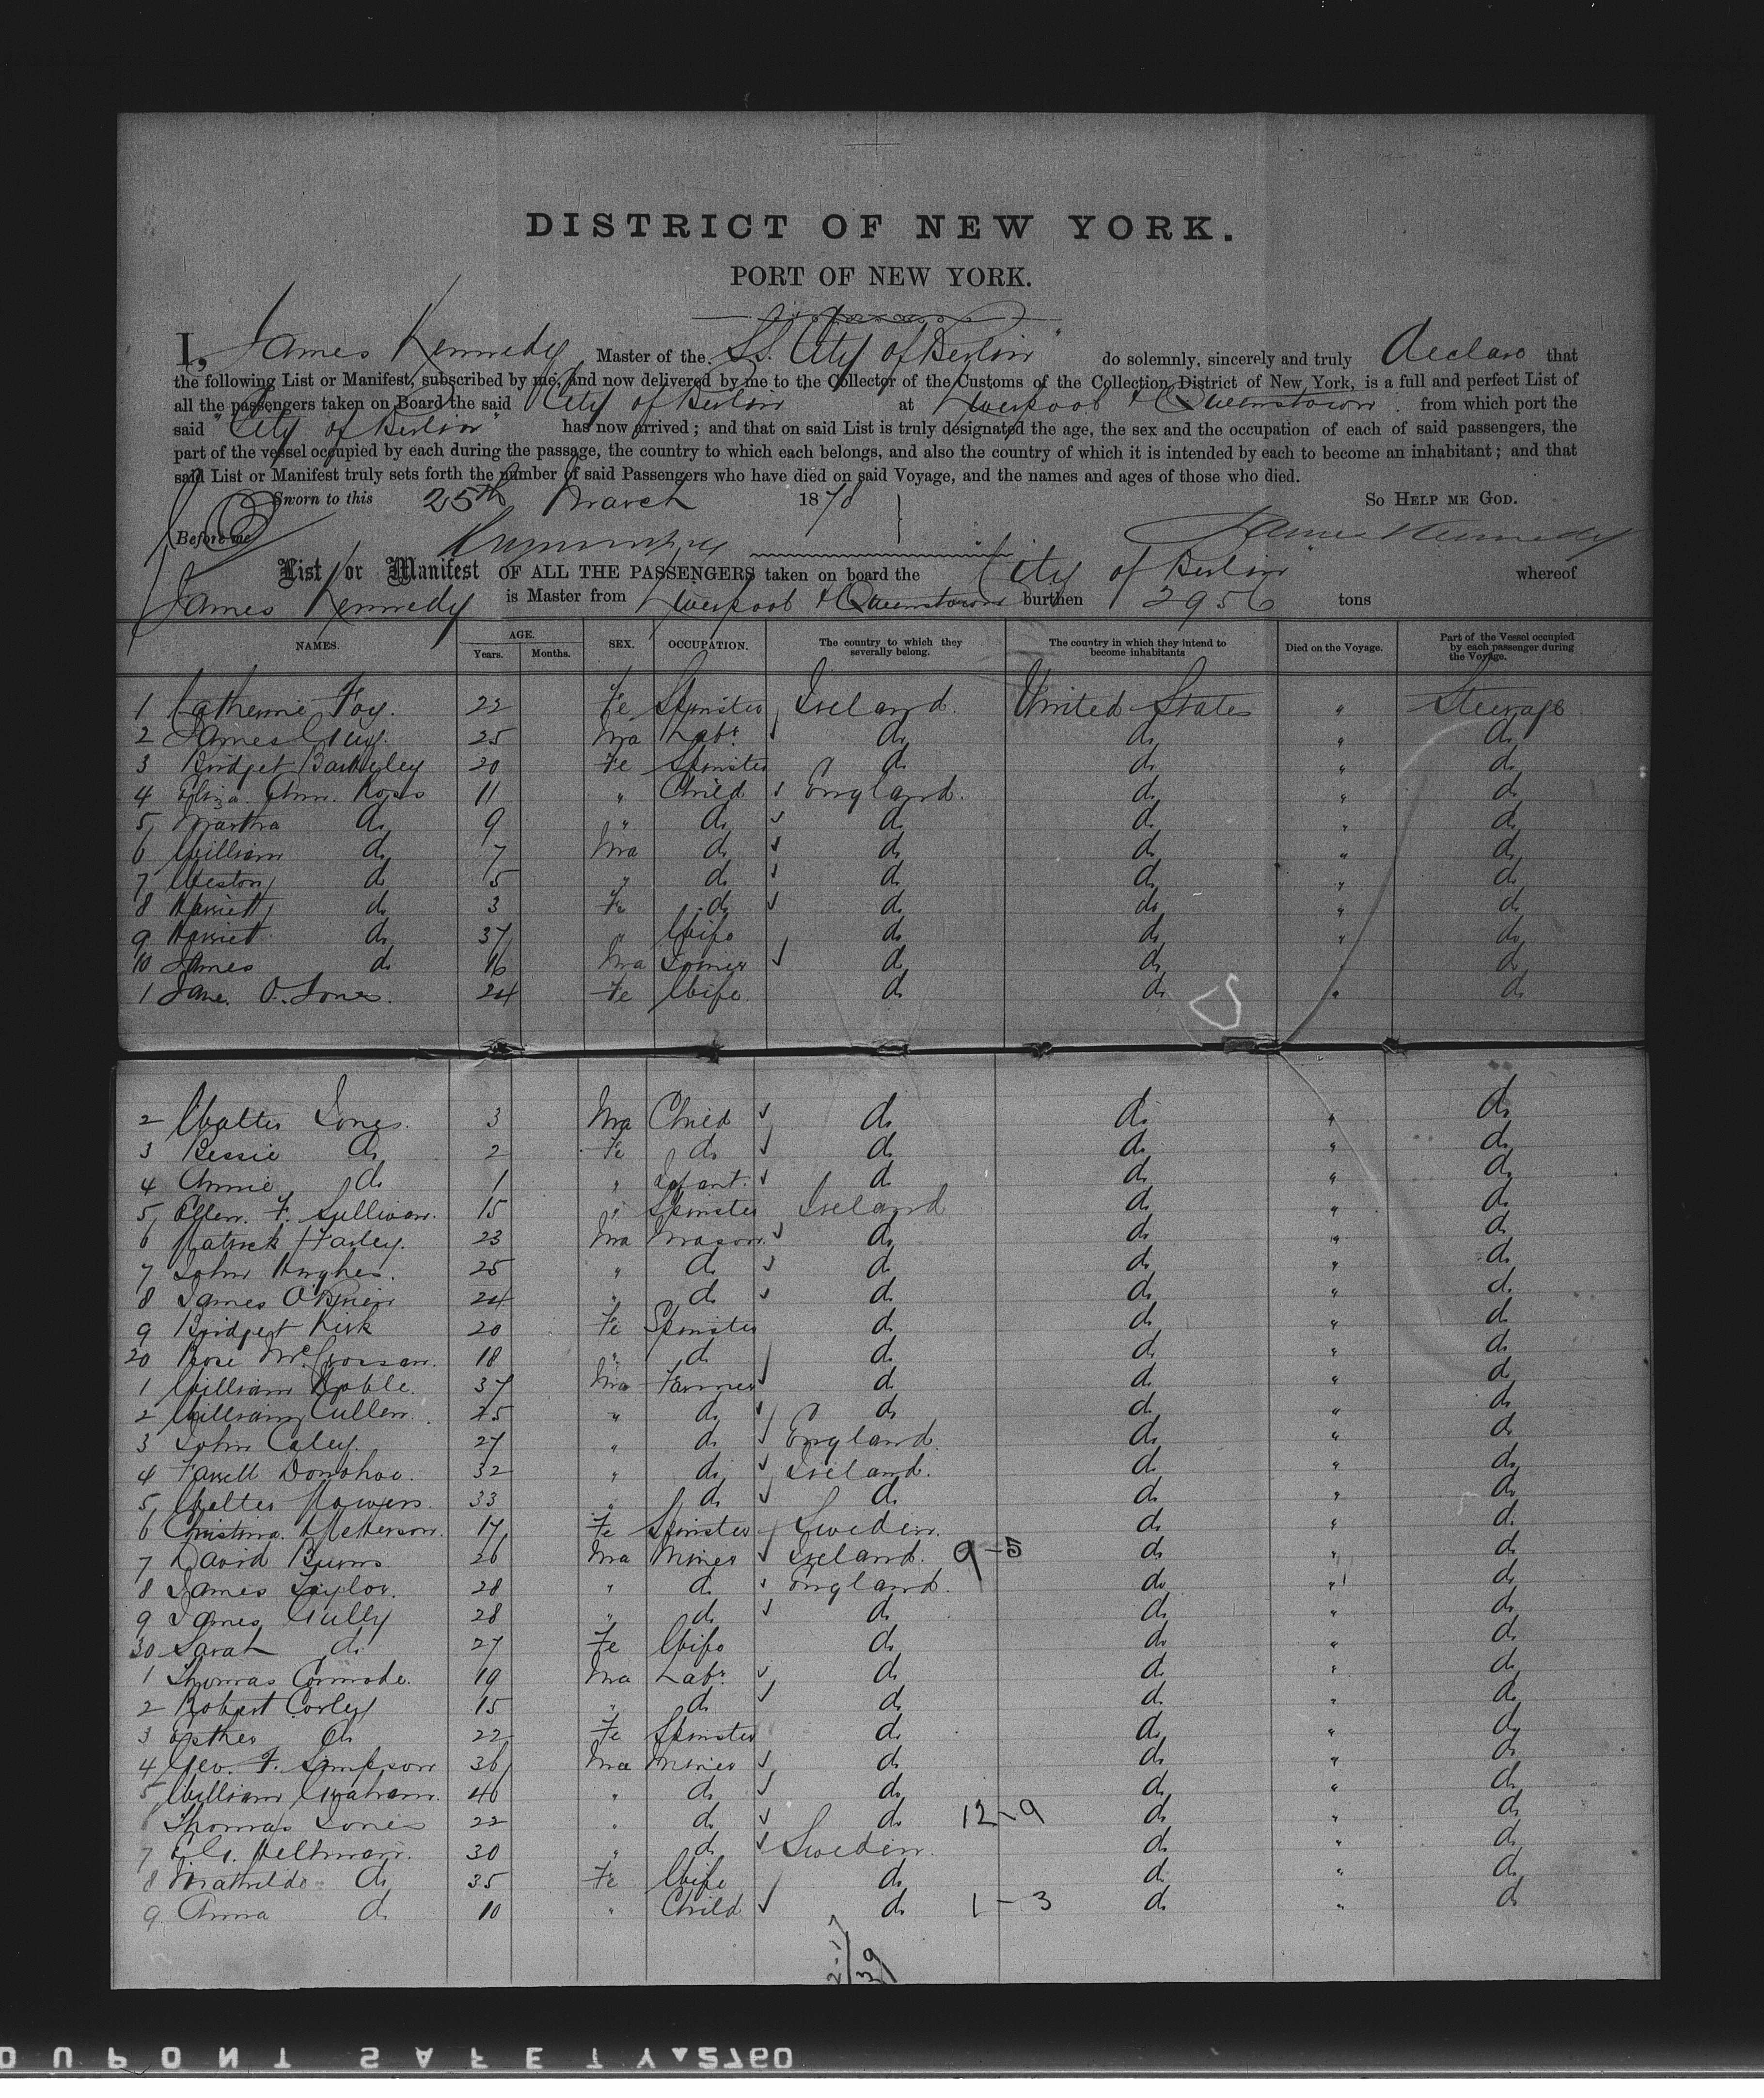 DISTRICT OF NEW YORK.
PORT OF NEW YORK.
I, James Kennedy Master of the SS. "City of Berlin" do solemnly, sincerely and truly declare that
the following List or Manifest, subscribed by me, and now delivered by me to the Collector of the Customs of the Collection District of New York, is a full and perfect List of
all the passengers taken on Board the said City of Berlin at Liverpool & Queenstown from which port the
said "City of Berlin" has now arrived; and that on said List is truly designated the age, the sex and the occupation of each of said passengers, the
part of the vessel occupied by each during the passage, the country to which each belongs, and also the country of which it is intended by each to become an inhabitant; and that
said List or Manifest truly sets forth the number of said Passengers who have died on said Voyage, and the names and ages of those who died.
Sworn to this 25th March 1878 So HELP ME GOD.
Before me James Kennedy
List or Manifest OF ALL THE PASSENGERS taken on board the City of Berlin whereof
James Kennedy is Master from Liverpool & Queenstown burthen 2956 tons
NAMES. AGE. Years. Months. SEX. OCCUPATION. The country to which they severally belong. The country in which they intend to become inhabitants Died on the Voyage. Part of the Vessel occupied by each passenger during the Voyage.
1 Catherine Foy. 22 Fe Spinster Ireland. United States " Steerage
2 James 25 Ma Labr. do do " do
3 Bridget 20 Fe Spinster do do " do
4 Eliza Ann. 11 " Child England. do " do
5 Martha do 9 " do do do " do
6 William do 7 Ma do do do " do
7 Weston do 5 " do do do " do
8 Harriett do 3 Fe do do do " do
9 Harriet do 37 " Wife do do " do
10 James do 16 Ma Joiner do do do
1 Jane O. Jones. 24 Fe Wife. do do " do
2 Walter Jones. 3 Ma Child do do " do
3 Bessie do 2 Fe do do do " do
4 Annie do 1 " Infant. do do " do
5 Ellen F. Sullivan. 15 " Spinster Ireland do " do
6 Patrick Farley. 23 Ma Mason do do " do
7 John Hughes. 25 " do do do " do
8 James O'Brien 24 " do do do " do
9 Bridget Kirk 20 Fe Spinster do do " do
20 Rose McCrossan. 18 " do do do " do
1 William Noble. 37 Ma Farmer do do " do
2 William Cullen. 25 " do do do " do
3 John Caley. 27 " do England. do " do
4 Farrell Donohoe. 32 " do Ireland. do " do
5 Walter Powers. 33 " do do do " do
6 Christina 17 Fe Spinster Sweden. do " do
7 David Burns. 26 Ma Miner Ireland. 9-5 do " do
8 James Taylor. 28 " do England. do " do
9 James Gully 28 " do do do " do
30 Sarah do 27 Fe Wife do do " do
1 Thomas Cormode. 19 Ma Labr. do do " do
2 Robert Corley 15 " do do do " do
3 Esther do 22 Fe Spinster do do " do
4 Geo. F. Simpson 36 Ma Miner do do " do
5 William Graham. 40 " do do do " do
6 Thomas Jones 22 " do do 12-9 do " do
7 Heltman. 30 " do Sweden. do " do
8 Mathilda do 35 Fe Wife do do " do
9 Anna do 10 " Child do 1-3 do " do
2-17/39
DUPONT SAFETY 2760